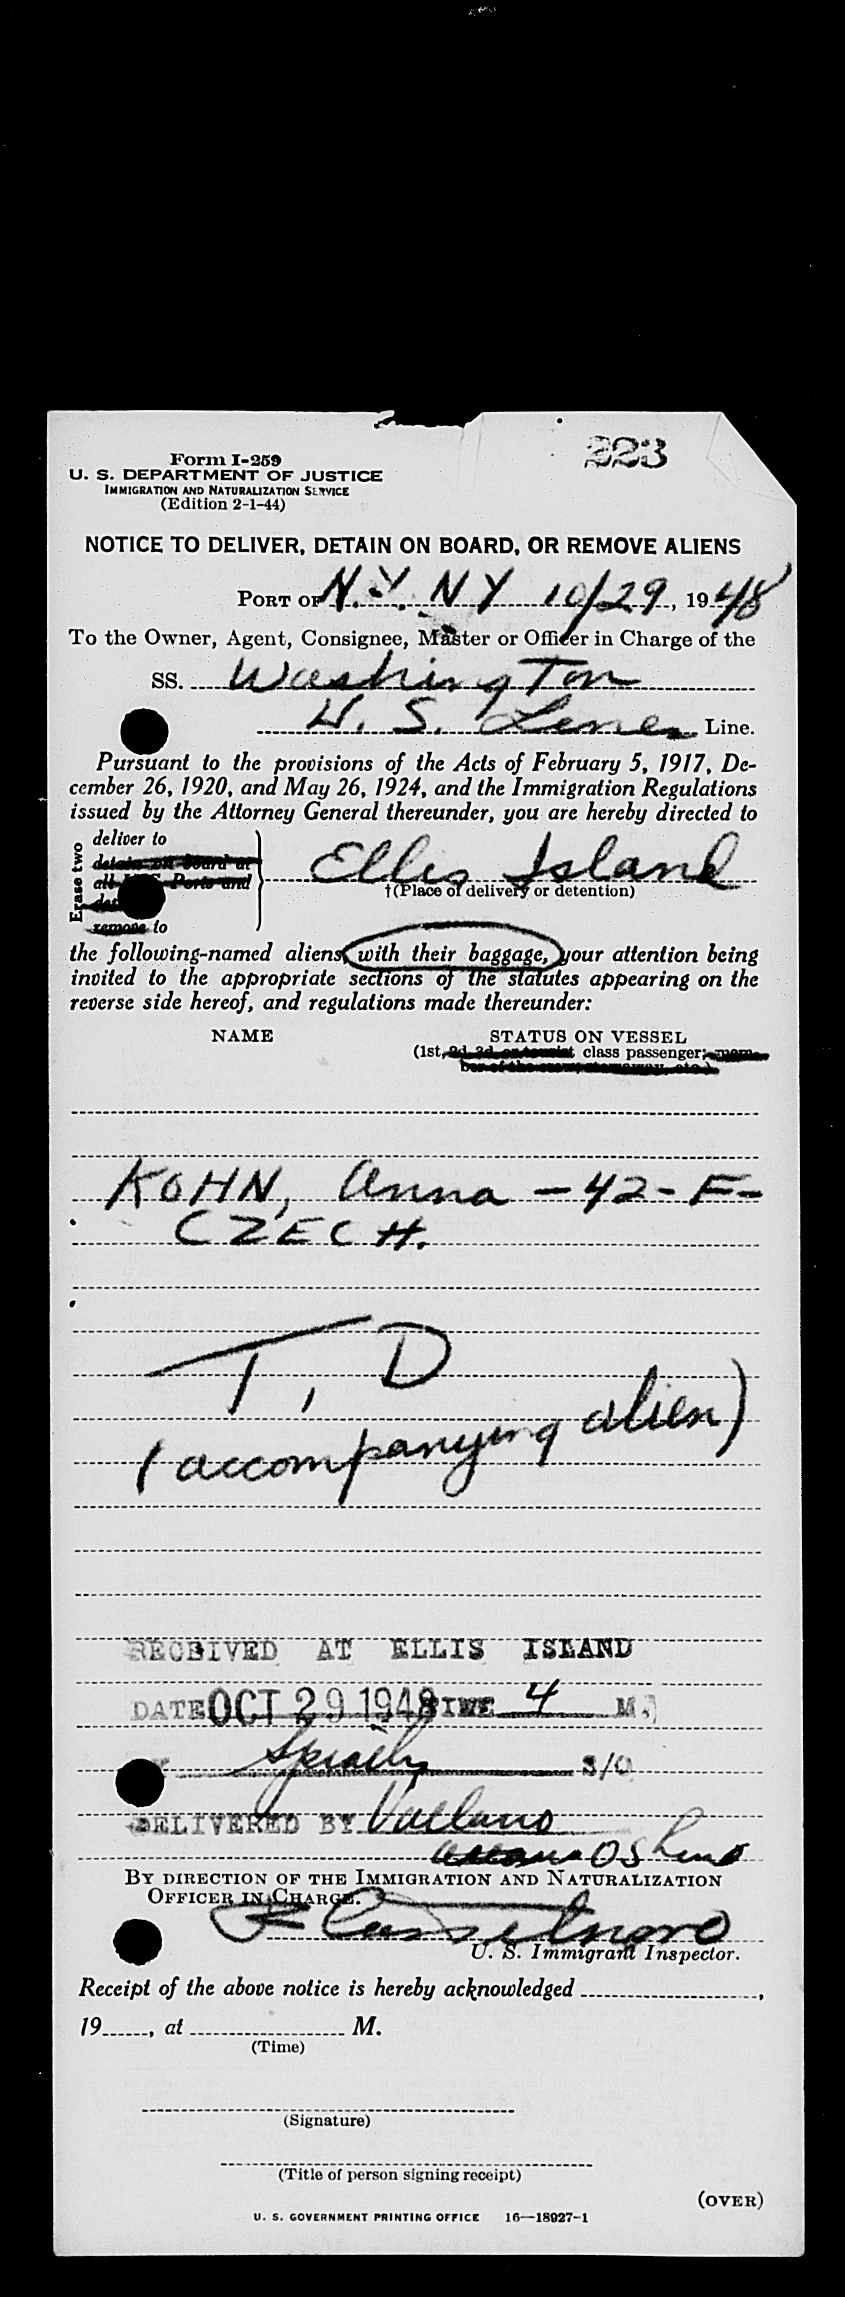 223
Form I-259
U. S. DEPARTMENT OF JUSTICE
IMMIGRATION AND NATURALIZATION SERVICE
(Edition 2-1-44)
NOTICE TO DELIVER, DETAIN ON BOARD, OR REMOVE ALIENS
PORT OF N.Y. NY 10/29, 1948
To the Owner, Agent, Consignee, Master or Officer in Charge of the
SS. Washington
U. S. Lines Line.
Pursuant to the provisions of the Acts of February 5, 1917, De-
cember 26, 1920, and May 26, 1924, and the Immigration Regulations
issued by the Attorney General thereunder, you are hereby directed to
Erase two
deliver to
detain on board at
all U. S. Ports and
remove to
Ellis Island
†(Place of delivery or detention)
the following-named aliens, with their baggage, your attention being
invited to the appropriate sections of the statutes appearing on the
reverse side hereof, and regulations made thereunder:
NAME STATUS ON VESSEL
(1st, 2d, 3d, or tourist class passenger; mem-
ber of the crew, stowaway, etc.)
KOHN, Anna - 42 - F -
CZECH.
T, D
(accompanying alien)
RECEIVED AT ELLIS ISLAND
DATE OCT 29 1948 TIME 4 M.
S/O
DELIVERED BY
BY DIRECTION OF THE IMMIGRATION AND NATURALIZATION
OFFICER IN CHARGE.
U. S. Immigrant Inspector.
Receipt of the above notice is hereby acknowledged ,
19 , at M.
(Time)
(Signature)
(Title of person signing receipt)
(OVER)
U. S. GOVERNMENT PRINTING OFFICE 16—18927-1